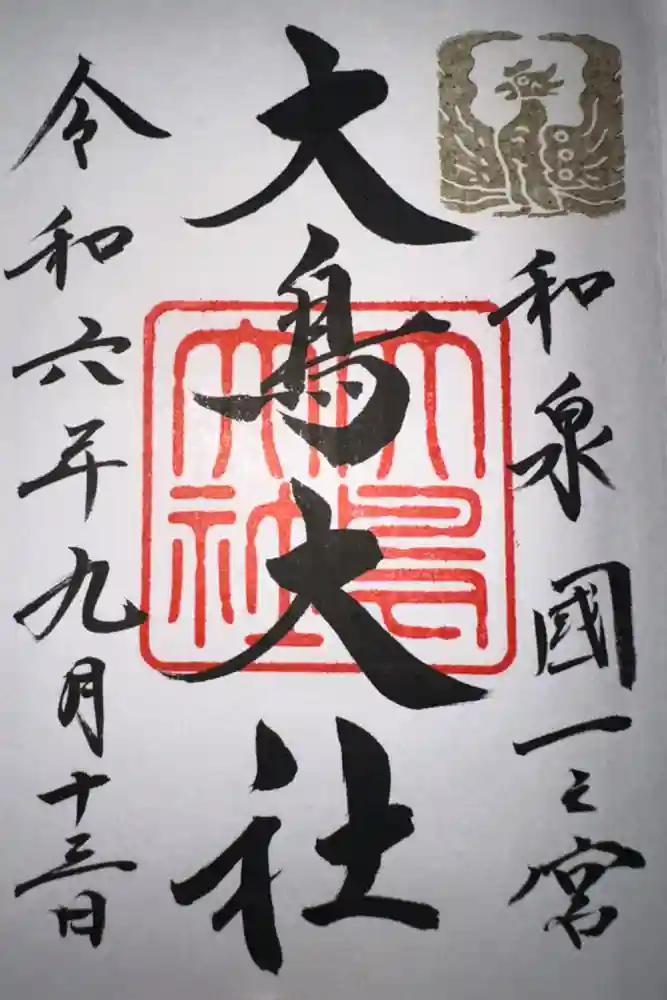 和泉國一之宮
大鳥大社
大鳥大社
令和六年九月十三日